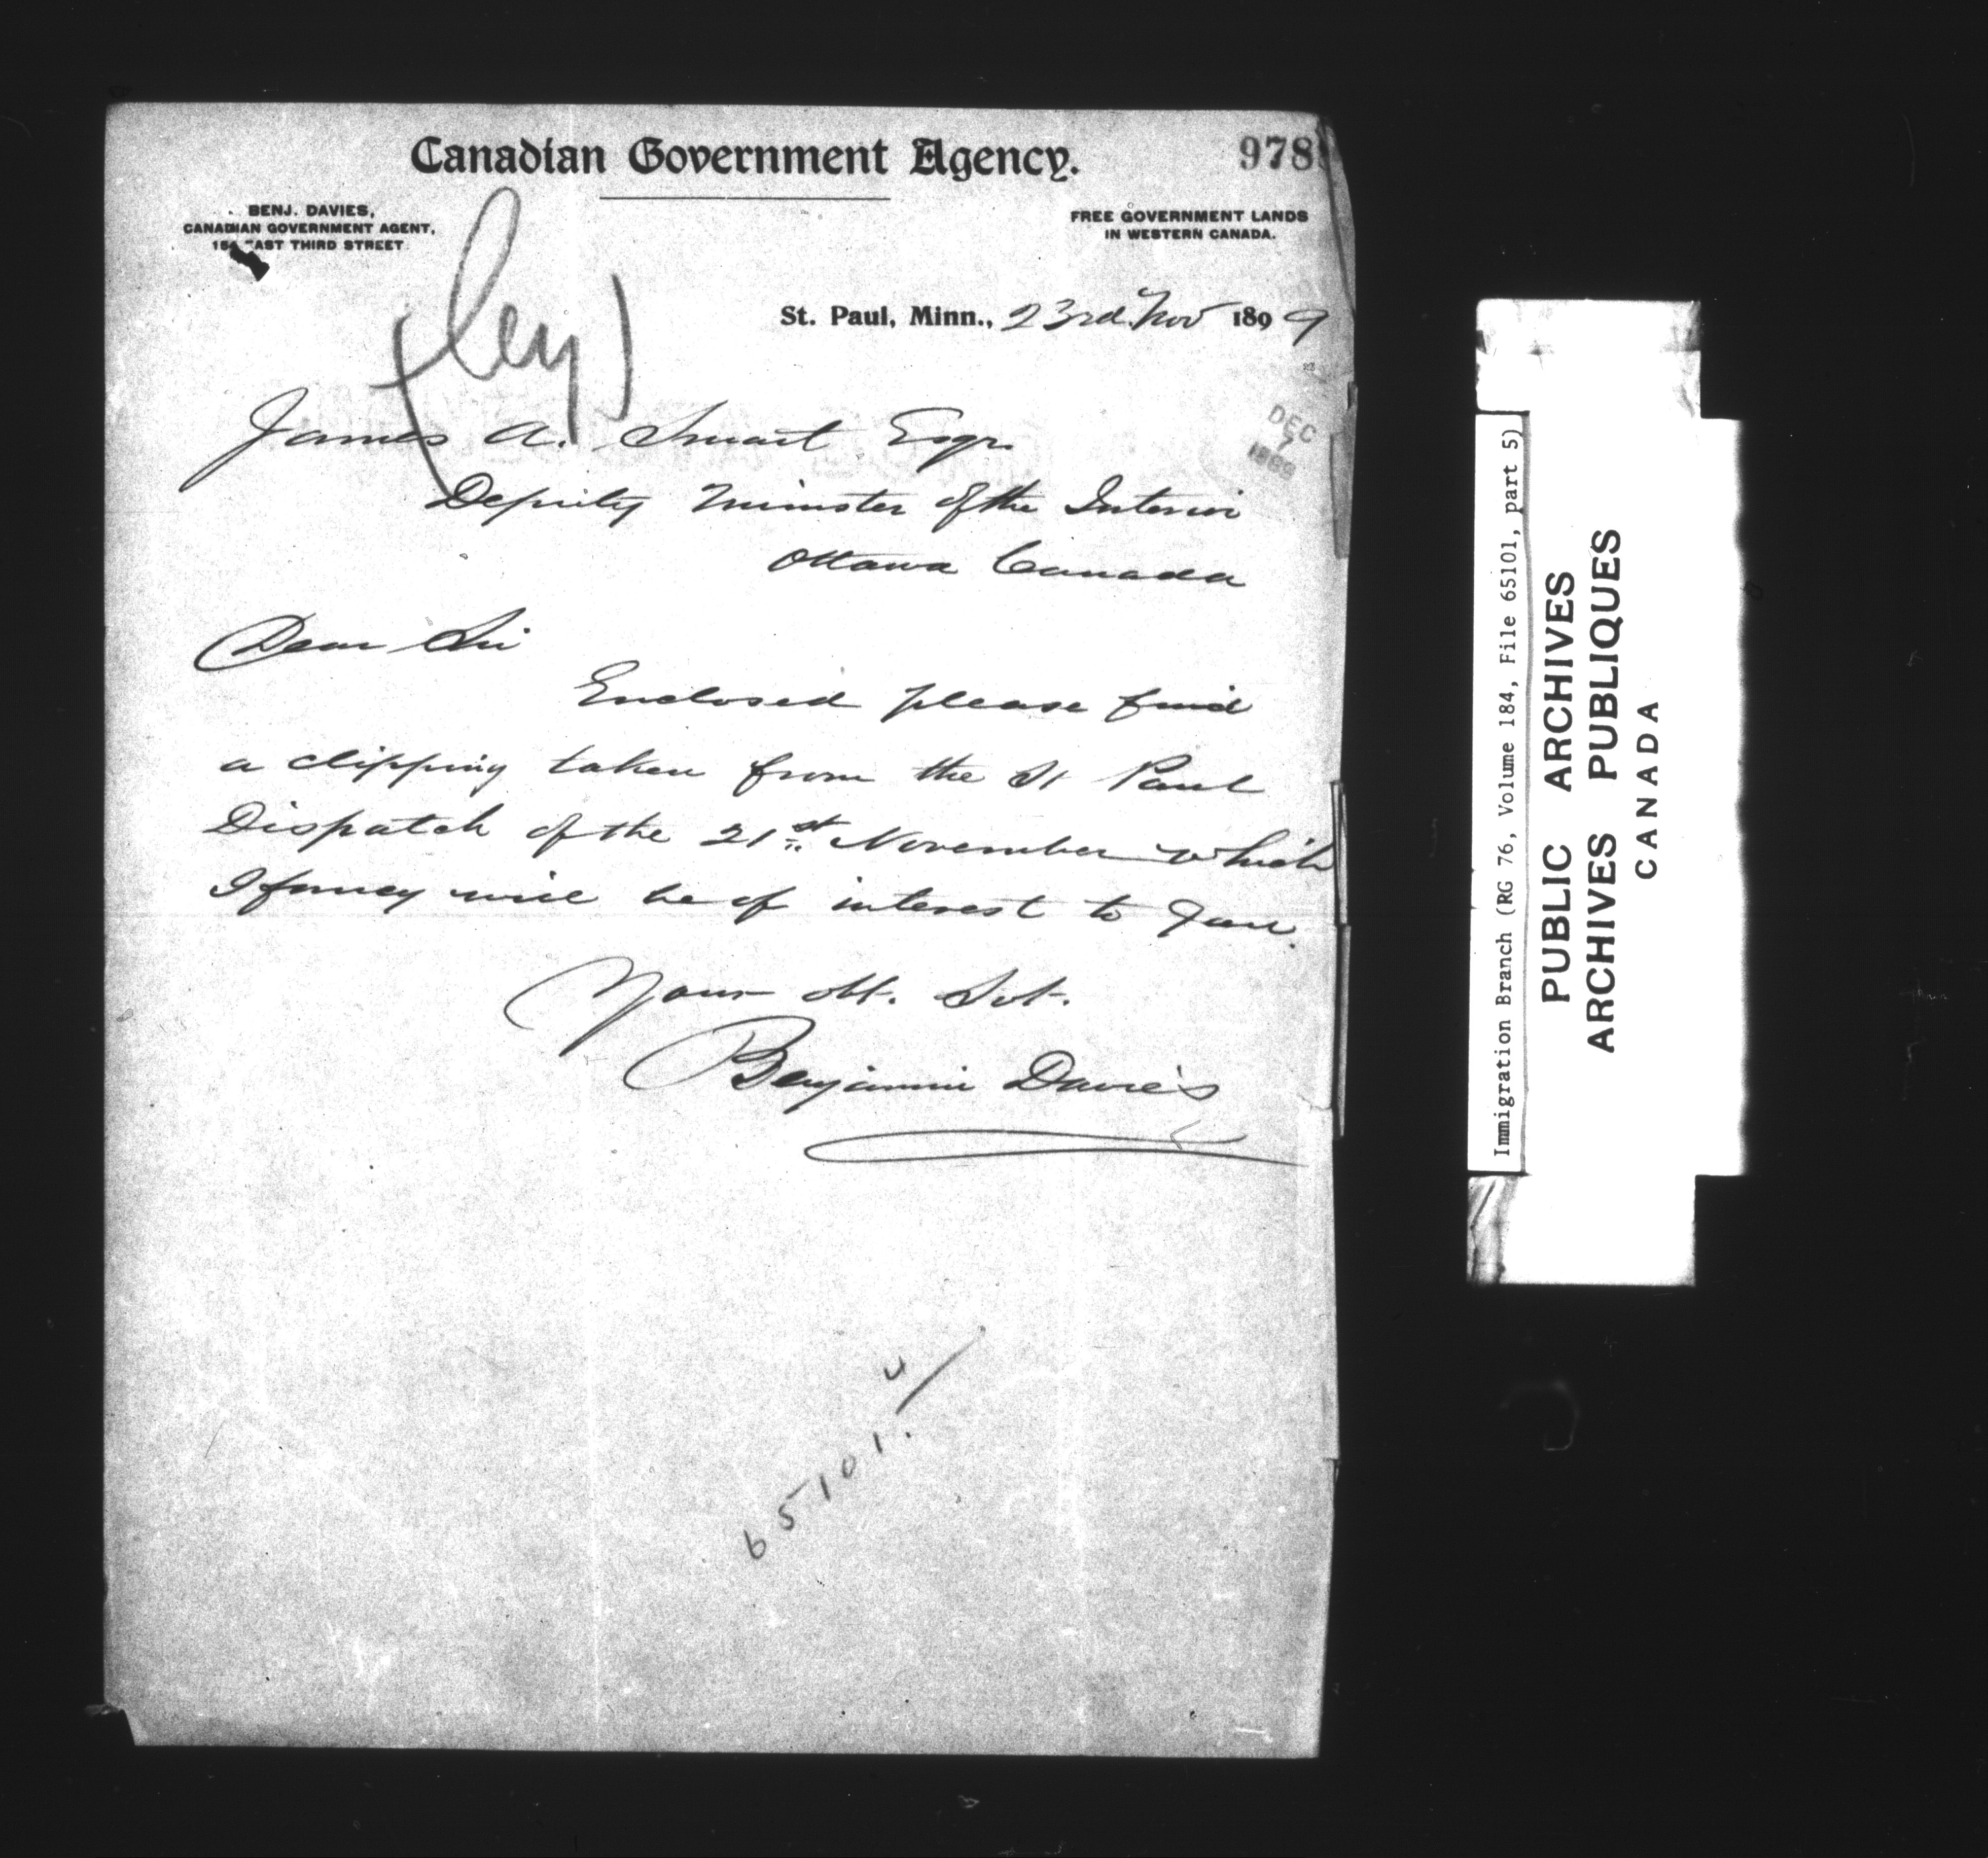 Canadian Government Agency.
978
BENJ. DAVIES,
CANADIAN GOVERNMENT AGENT,
EAST THIRD STREET
FREE GOVERNMENT LANDS
IN WESTERN CANADA.
St. Paul, Minn., 23rd. Nov 1899
DEC
7
1899
James A. Smart Esqr.
Deputy Minister of the Interior
Ottawa Canada
Dear Sir
Enclosed please find
a clipping taken from the St Paul
Dispatch of the 21st November which
I fancy will be of interest to you.
Your obt. Svt.
Benjamin Davies
65101.
Immigration Branch (RG 76, Volume 184, File 65101, part 5)
PUBLIC ARCHIVES
ARCHIVES PUBLIQUES
CANADA